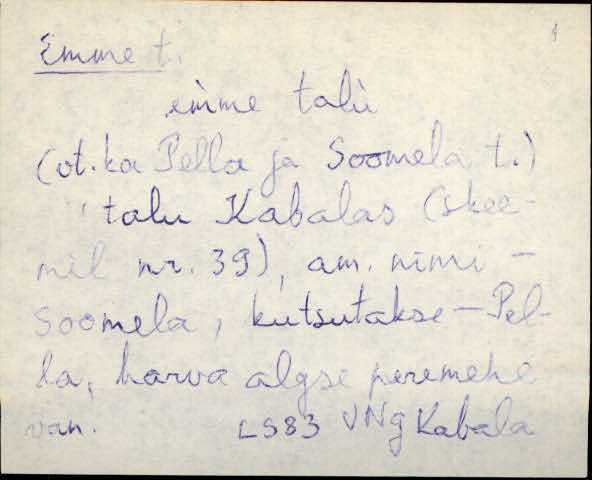 1
Emme t.
emme talu
(vt. ka Pella ja Soomela t.)
talu Kabalas (skee-
mil nr. 39), am. nimi -
Soomela, kutsutakse - Pel-
la, harva algse peremehe
van. LS83 VNg Kabala